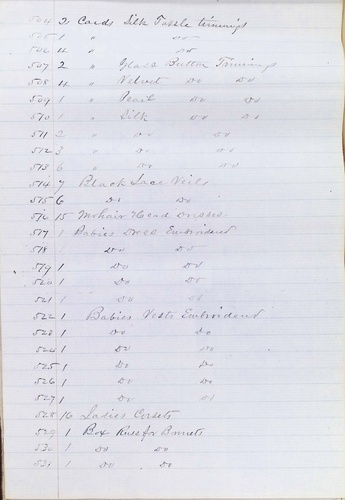 504 2 Cards Silk Tassle trimings
505 1 " Do
506 4 " Do
507 2 " Glass Button Trimings
508 4 " Velvet Do Do
509 1 " Pearl Do Do
510 1 " Silk Do Do
511 2 " Do Do
512 3 " Do Do
513 6 " Do Do
514 7 Black Lace Veils
515 6 Do Do
516 15 Mohair Head Dresses
517 1 Babies Dress Embroiderd
518 1 Do Do
519 1 Do Do
520 1 Do Do
521 1 Do Do
522 1 Babies Vests Embroiderd
523 1 Do Do
524 1 Do Do
525 1 Do Do
526 1 Do Do
527 1 Do Do
528 16 Ladies Corsets
529 1 Box for Bonnets
530 1 Do Do
531 1 Do Do